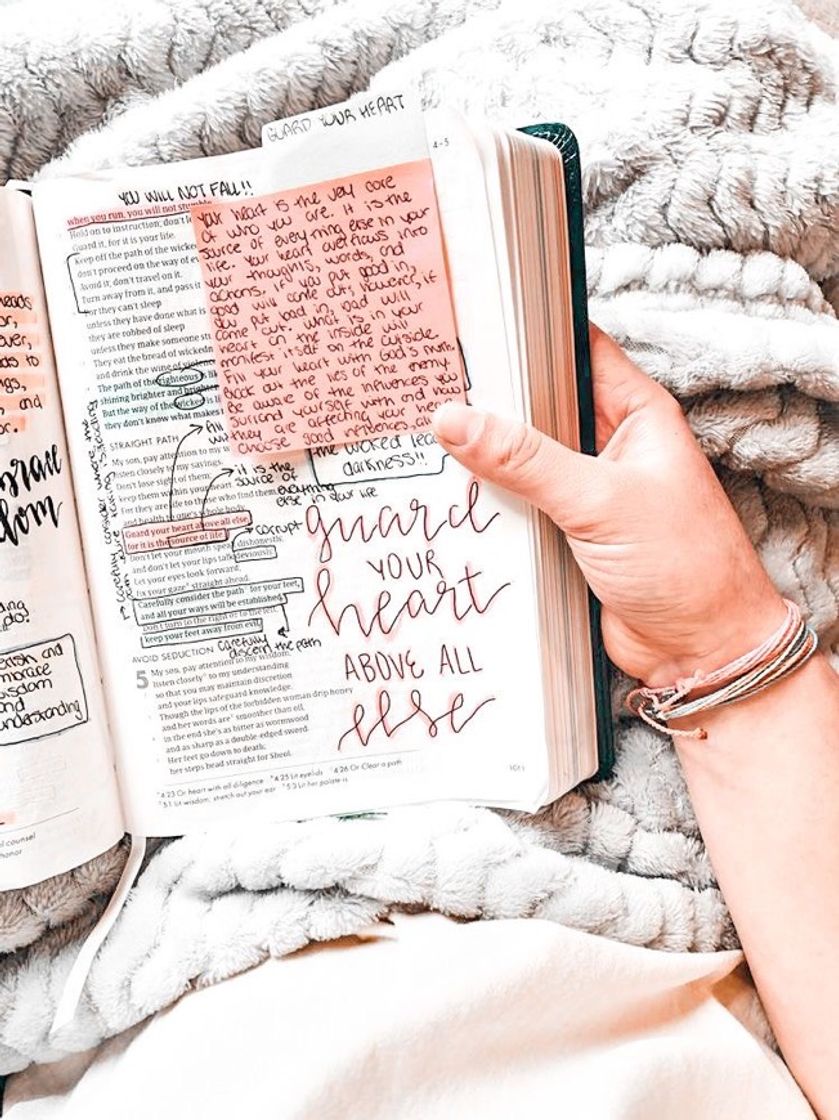 GUARD YOUR HEART
4-5
YOU WILL NOT FALL!!
when you run, you will not stumble
Hold on to instruction; don't le
Guard it, for it is your life.
Keep off the path of the wicked
don't proceed on the way of ev
Avoid it; don't travel on it.
Turn away from it, and pass it
For they can't sleep
unless they have done what is
they are robbed of sleep
unless they make someone stu
They eat the bread of wickedn
and drink the wine of violence
The path of the righteous is like
shining brighter and brighter
But the way of the wicked
they don't know what makes
Your heart is the very core
of who you are. It is the
source of everything else in your
life. Your heart overflows into
your thoughts, words, and
actions. If you put good in,
good will come out; however, if
you put bad in, bad will
come out. What is in your
heart on the inside will
manifest itself on the outside
Fill your heart with God's truth
Block out the lies of the enemy.
Be aware of the influences you
surround yourself with and how
they are affecting your he
choose good influences
the wicked lead
darkness!!
STRAIGHT PATH
My son, pay attention to my
listen closely to my sayings.
Don't lose sight of them;
keep them within your heart.
For they are life to those who find them,
and health to one's whole body.
Guard your heart above all else,
for it is the source of life.
Don't let your mouth speak dishonestly,
and don't let your lips talk deviously.
Let your eyes look forward;
fix your gaze straight ahead.
Carefully consider the path for your feet,
and all your ways will be established.
Don't turn to the right or to the left;
keep your feet away from evil.
it is the
source of
everything
else in your life
corrupt
carefully
discern the path
guard
YOUR
heart
ABOVE ALL
else
AVOID SEDUCTION
5 My son, pay attention to my wisdom;
listen closely to my understanding
so that you may maintain discretion
and your lips safeguard knowledge.
Though the lips of the forbidden woman drip honey
and her words are smoother than oil,
in the end she's as bitter as wormwood
and as sharp as a double-edged sword.
Her feet go down to death;
her steps head straight for Sheol.
4:23 Or heart with all diligence 4:25 Lit eyelids 4:26 Or Clear a path
5:1 Lit wisdom; stretch out your ear 5:3 Lit her palate is
and
wisdom
and
understanding
counsel
honor